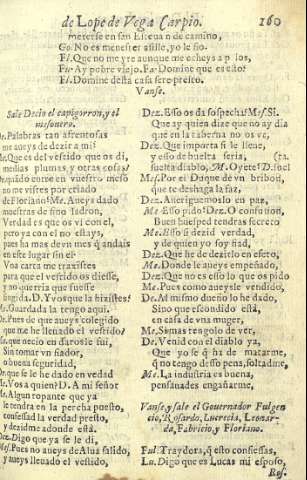 de Lope de Vega Carpio. 160
meterse en san Esteuan de camino,
Go. No es menester asille, yo le fio.
Fl. Que no me yre aunque me ocheys a palos,
Fu. Ay pobre viejo. Fa. Domine que es esto?
Fl. Domine desta casa sere presto.
Vanse.
Sale Decio el capigorron, y el
mesonero.
De. Palabras tan afrentosas
me aueys de dezir a mi?
Me. Que es del vestido que os di,
medias plumas, y otras cosas?
De. quãdo entre en vuestro meso
no me vistes por criado
de Floriano? Me. Aueys dado
muestras de fino ladron,
Verdad es que os vi con el,
pero ya con el no estays,
pues ha mas de vn mes q̃ andais
en este lugar sin el.
Voa carta me traxistes
para que el vestido os diesse,
y no querria que fuesse
fingida. D. Yvos que la hizistes?
Me. Guardada la tengo aqui.
De. Pues de que aueys colegido
que me he llenado el vestido?
Me. que necio en darosle fui,
Sin tomar vn fiador,
o buena seguridad,
De. que se le he dado en verdad
Me. Vos a quien? D. A mi señor
Me. Algun ropante que ya
le tendra en la percha puesto,
confessad la verdad presto,
y dezidme adonde està.
Dez. Digo que ya se le di,
Mes. Pues no aueys de
y aueys lleuado el vestido,
Dez. Esso os da sospecha? Mes. Si.
Que ay quien dize que no ay dia
que en la taberna no os ve,
Dez. Que importa si le llene,
y esso de buelta seria,
sueltediablo, M. Oyete: D. suel
Mes. Por el Duque de vn bribon,
que te deshaga la faz,
Dez. Aueriguemoslo en paz,
Me Esso pido: Dez. O confusion,
Buen huesped tendras secreto
Me. Esso si dezid verdad,
y de quien yo soy fiad,
Dez. Que he de dezirlo en efeto,
Me. Donde le aueys empeñado,
Dez. Que no es esso lo que os pido
Me. Pues como aueysle vendido,
Dez. Al mismo dueño lo he dado,
Sino que escondido està,
en casa de vna muger,
Me. Señas tengolo de ver,
De. Venid con el diablo ya,
Que yo se q̃ ha de matarme,
q̃ no tengo desso pena, soltadme,
Me. La industria es buena,
pensanades engañarme,
Vanse, y sale el Gouernador Fulgen
cio, Rosardo, Lucrecia, Leonar-
da, Fabricio, y Floriano.
Ful. Traydora, q̃ esto confessas,
Lu. Digo que es Lucas mi esposo,
Ros.